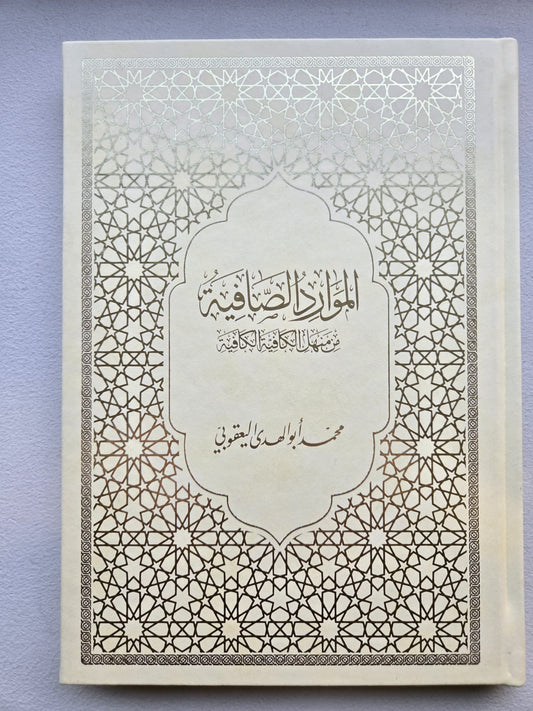 الموارد الصافية
من منهل الكافية الكافية
محمد أبو الهدى اليعقوبي